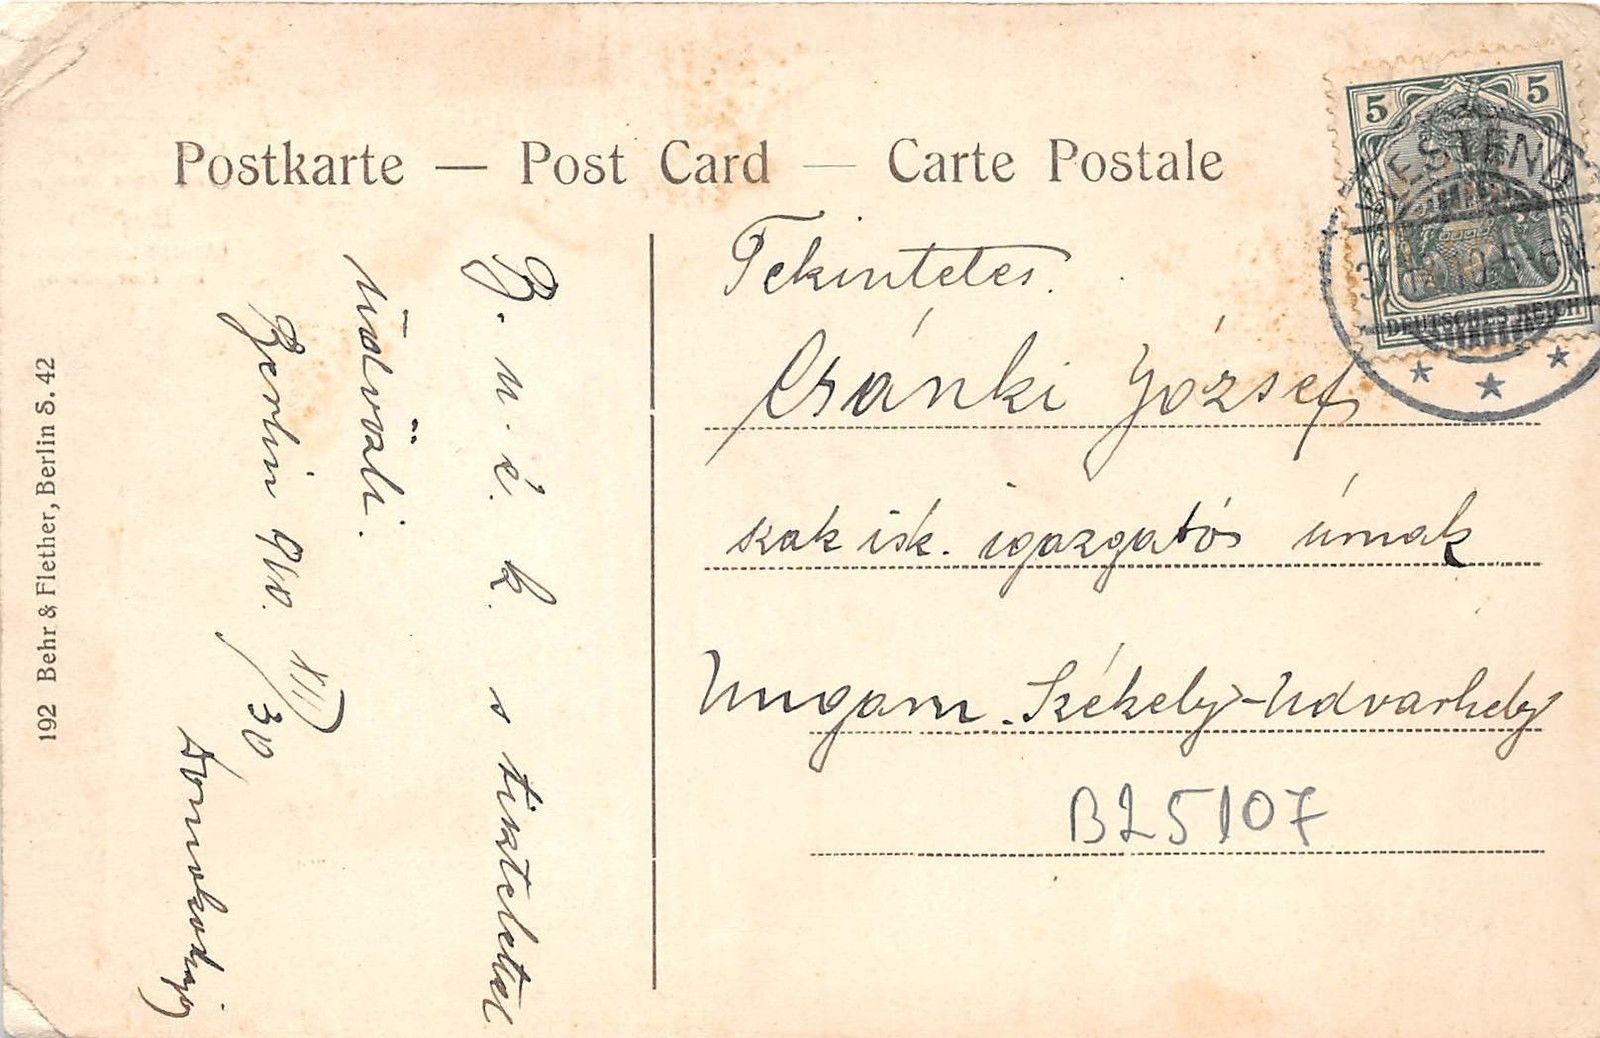 Postkarte — Post Card — Carte Postale
5 5
WESTEND
DEUTSCHES REICH
Tekintetes
Csánki József
szak isk. igazgatós úrnak
Ungarn. Székely-Udvarhely
B25107
B. u. é. k. s tisztelettel
üdvözli
Berlin 910. XII/30
192 Behr & Flether, Berlin S. 42